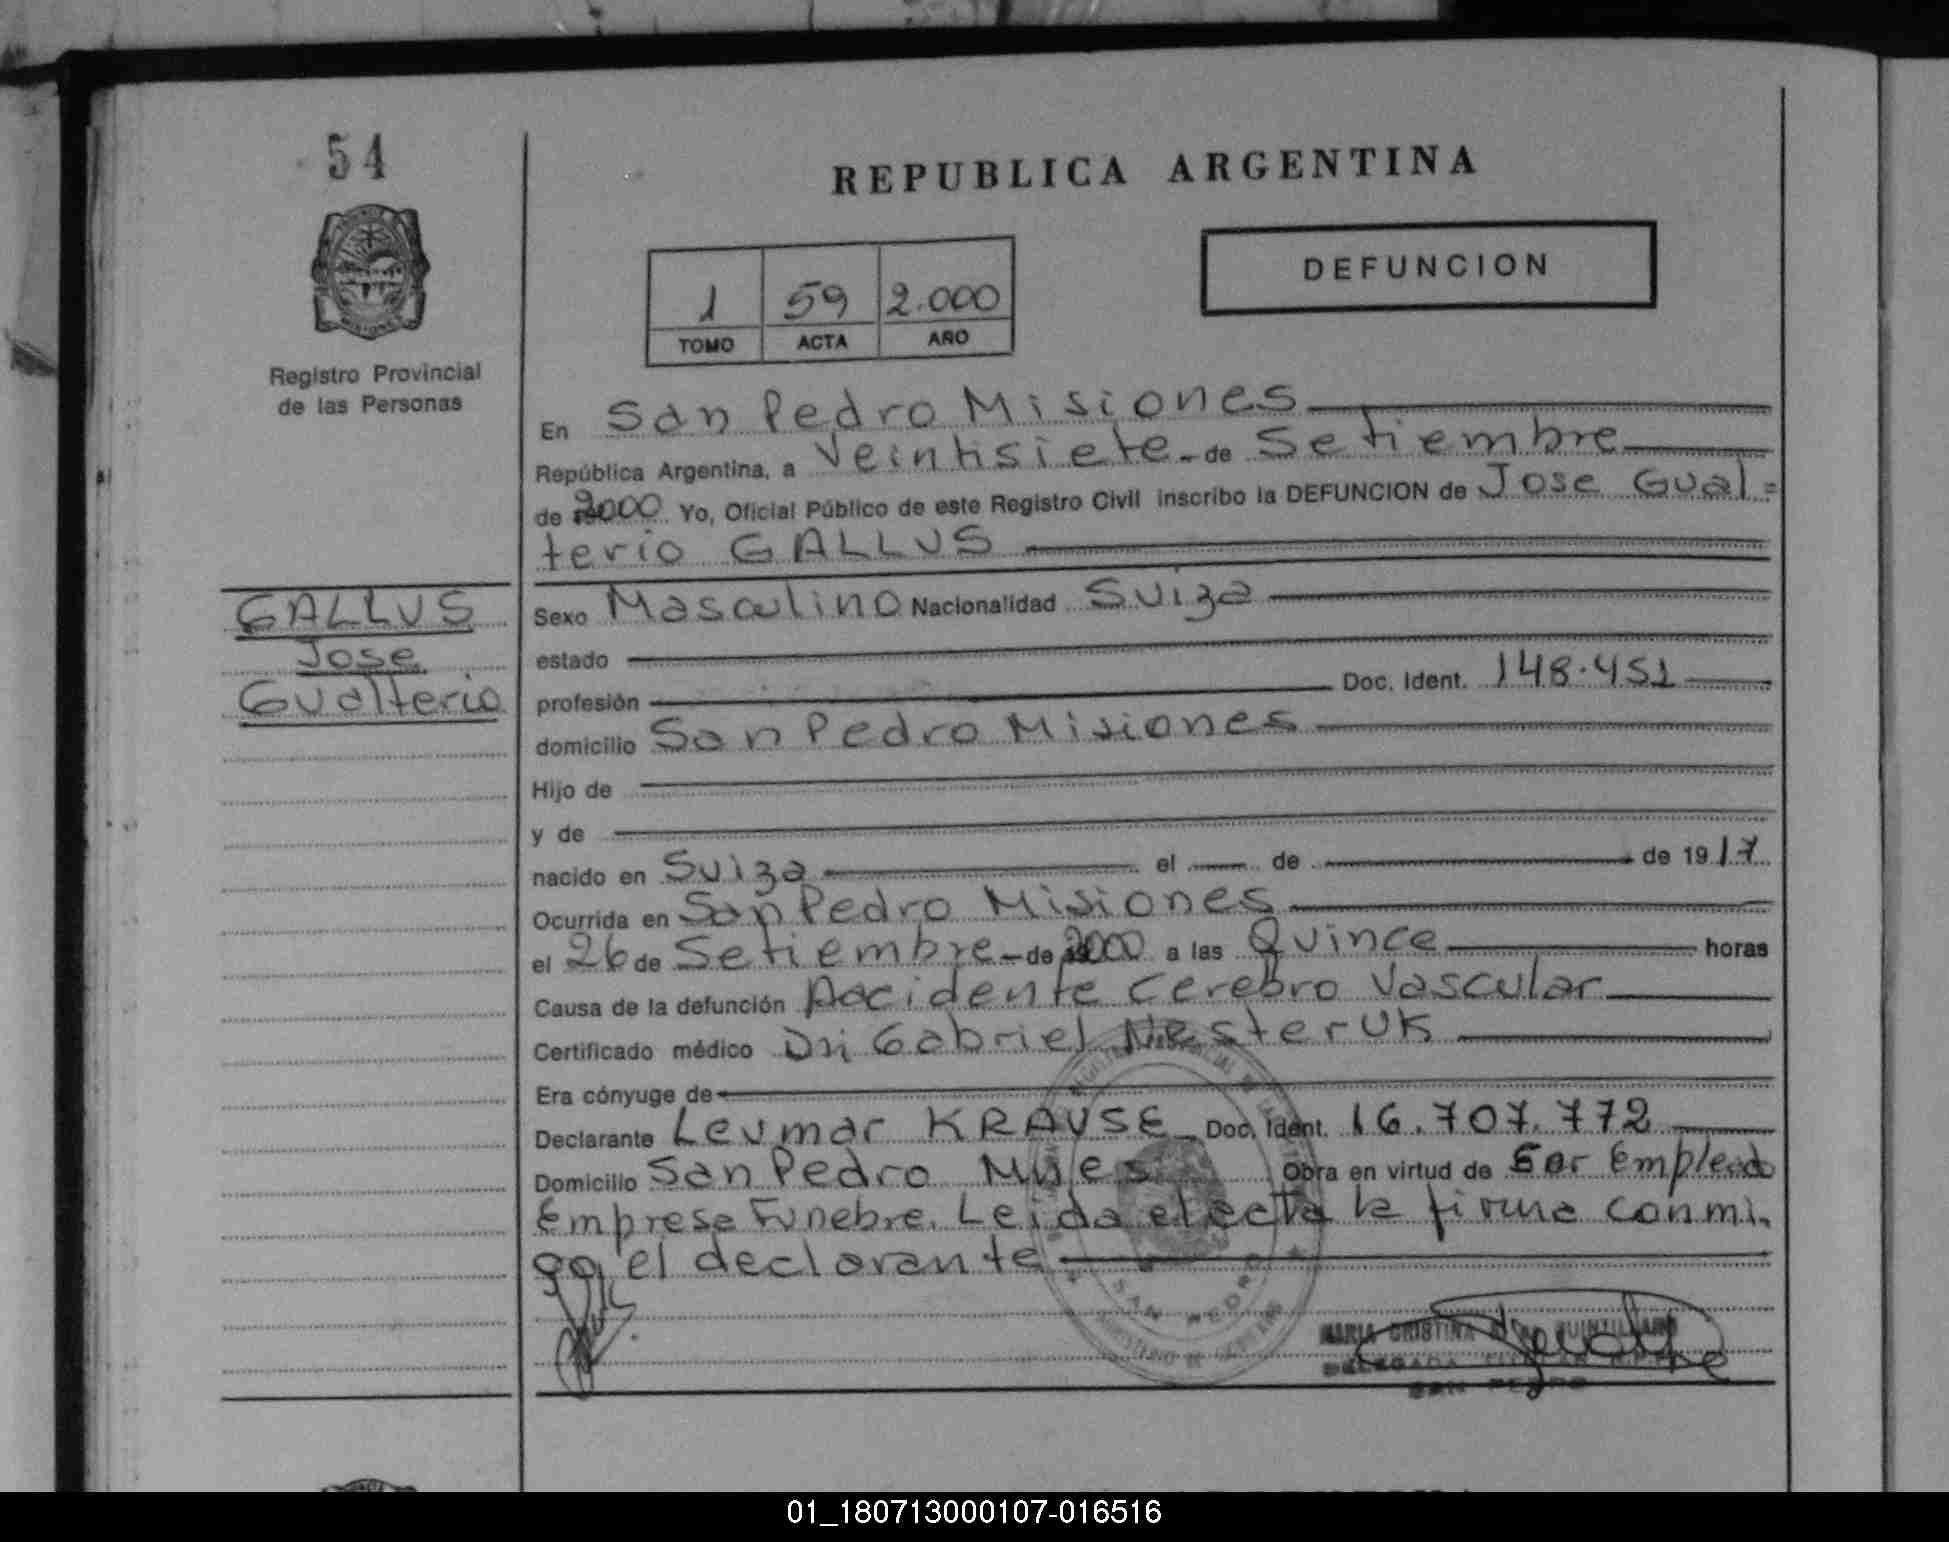 54
REPUBLICA ARGENTINA
MISIONES
Registro Provincial
de las Personas
1 59 2.000
TOMO ACTA AÑO
DEFUNCION
En San Pedro Misiones
República Argentina, a Veintisiete de Setiembre
de 2000 Yo, Oficial Público de este Registro Civil inscribo la DEFUNCION de Jose Gual=
terio GALLUS
GALLUS
Jose
Gualterio
Sexo Masculino Nacionalidad Suiza
estado
profesión Doc. Ident. 148.451
domicilio San Pedro Misiones
Hijo de
y de
nacido en Suiza el de de 1917
Ocurrida en San Pedro Misiones
el 26 de Setiembre de 2000 a las Quince horas
Causa de la defunción Accidente Cerebro Vascular
Certificado médico Dr Gabriel NesterUK
Era cónyuge de
Declarante Leumar KRAUSE Doc. Ident. 16.707.772
Domicilio San Pedro Mnes Obra en virtud de Ser Empleado
Empresa Funebre. Leida el acta la firma conmi
go, el declarante
SAN PEDRO
MARIA CRISTINA QUINTILLAN
DELEGADA TITULAR
SAN PEDRO
01_180713000107-016516